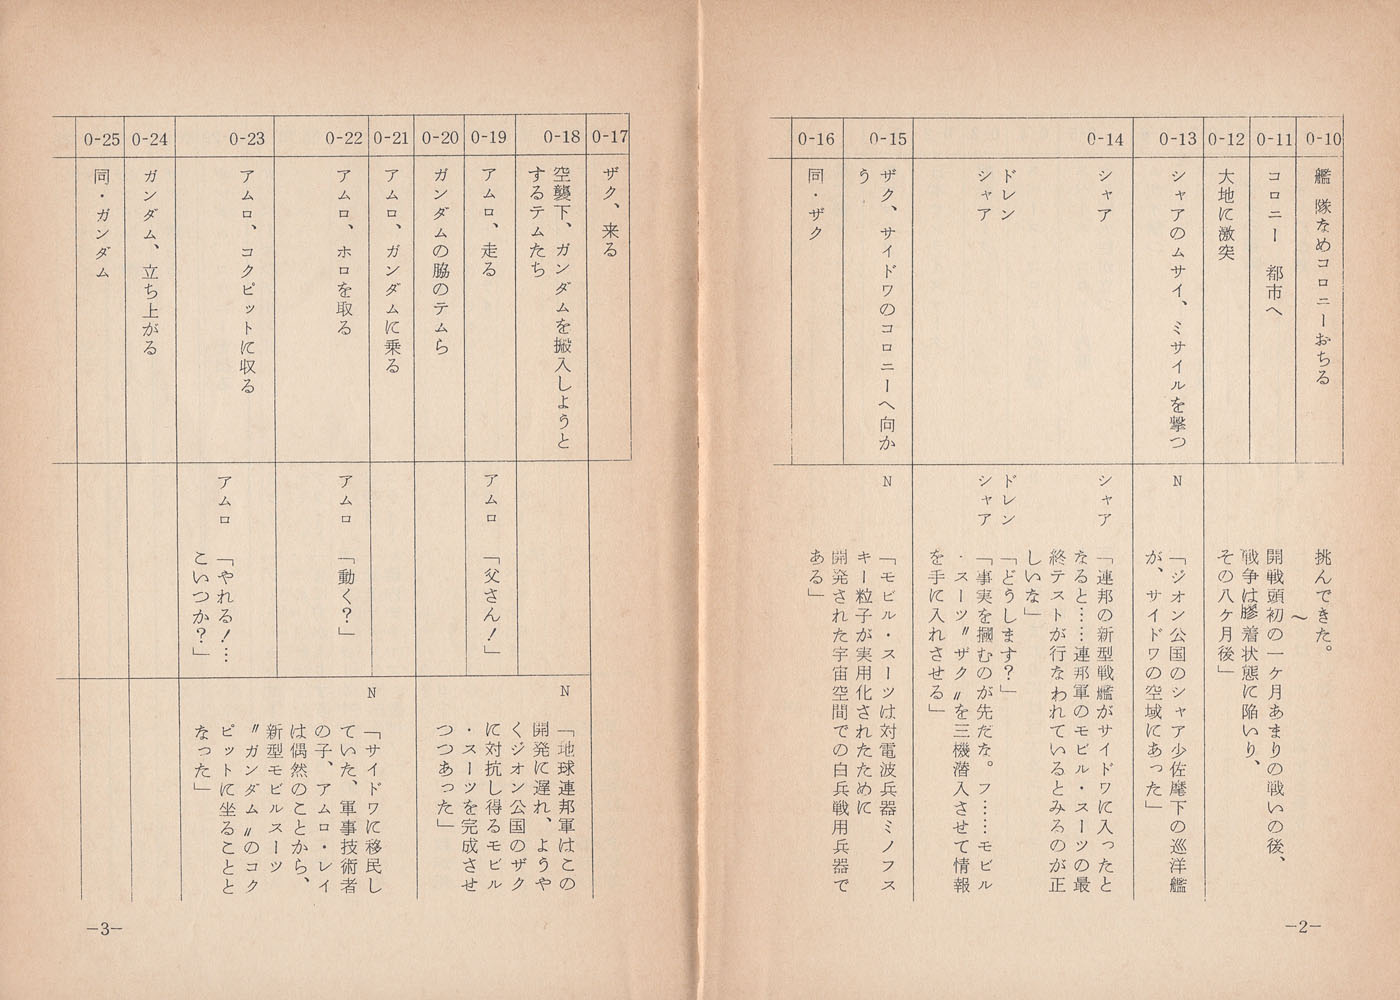 0-10
艦隊なめコロニーおちる
挑んできた。
〜
0-11
コロニー 都市へ
開戦頭初の一ケ月あまりの戦いの後、
戦争は膠着状態に陥いり、
0-12
大地に激突
その八ケ月後」
0-13
シャアのムサイ、ミサイルを撃つ
N
「ジオン公国のシャア少佐麾下の巡洋艦
が、サイドワの空域にあった」
0-14
シャア
シャア
「連邦の新型戦艦がサイドワに入ったと
なると……連邦軍のモビル・スーツの最
終テストが行なわれているとみるのが正
しいな」
ドレン
ドレン
「どうします?」
シャア
シャア
「事実を摑むのが先だな。フ……モビル
・スーツ〝ザク〟を三機潜入させて情報
を手に入れさせる」
0-15
ザク、サイドワのコロニーへ向か
う
N
「モビル・スーツは対電波兵器ミノフス
キー粒子が実用化されたために
開発された宇宙空間での白兵戦用兵器で
ある」
0-16
同・ザク
—2—
0-17
ザク、来る
0-18
空襲下、ガンダムを搬入しようと
するテムたち
N
「地球連邦軍はこの
開発に遅れ、ようや
くジオン公国のザク
に対抗し得るモビル
・スーツを完成させ
つつあった」
0-19
アムロ、走る
アムロ
「父さん!」
0-20
ガンダムの脇のテムら
0-21
アムロ、ガンダムに乗る
0-22
アムロ、ホロを取る
アムロ
「動く?」
N
「サイドワに移民し
ていた、軍事技術者
の子、アムロ・レイ
は偶然のことから、
新型モビルスーツ
〝ガンダム〟のコク
ピットに坐ることと
なった」
0-23
アムロ、コクピットに収る
アムロ
「やれる!…
こいつか?」
0-24
ガンダム、立ち上がる
0-25
同・ガンダム
—3—